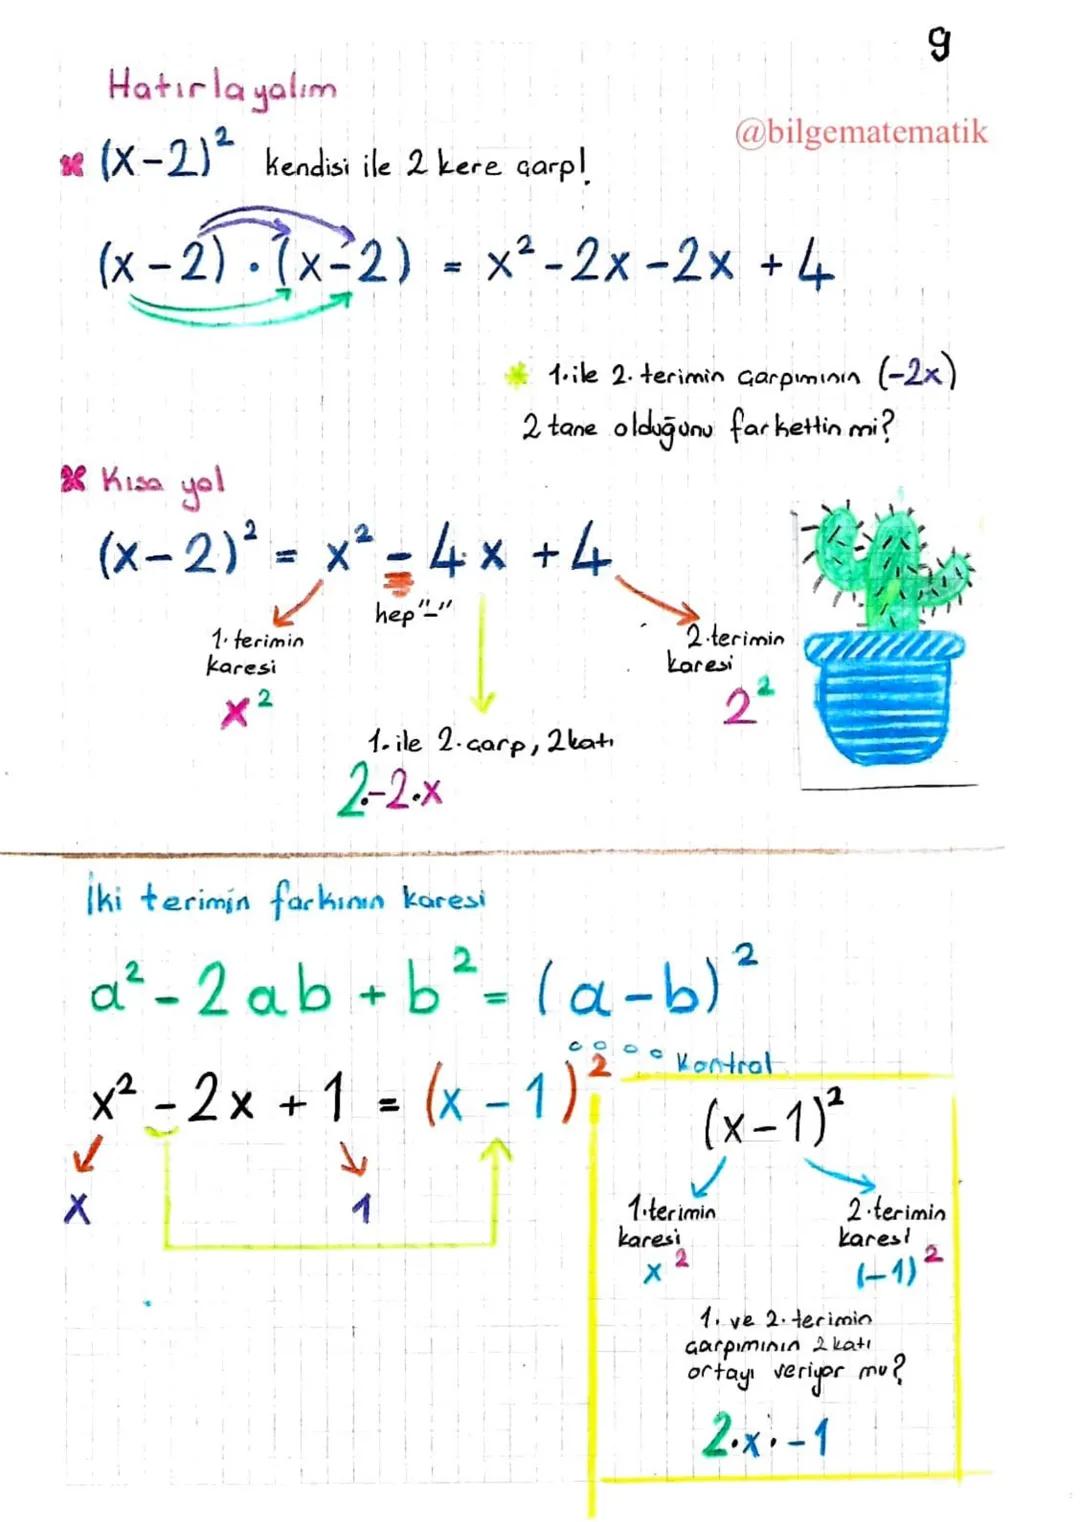 9
Hatırlayalım
@bilgematematik
(x-2)² kendisi ile 2 kere çarp!
(x-2)·(x-2) = x²-2x-2x+4
1. ile 2. terimin çarpımının (-2x)
2 tane olduğunu farkettin mi?
Kısa yol
(x-2)² = x² - 4x + 4
hep "-"
1. terimin
karesi
x²
2. terimin
karesi
2²
1. ile 2. çarp, 2 katı
2·-2·x
İki terimin farkının karesi
a²-2ab+b² = (a-b)²
Kontrol
x²-2x+1 = (x-1)²
x
1
(x-1)²
1. terimin
karesi
x²
2. terimin
karesi
(-1)²
1. ve 2. terimin
çarpımının 2 katı
ortayı veriyor mu?
2·x·-1